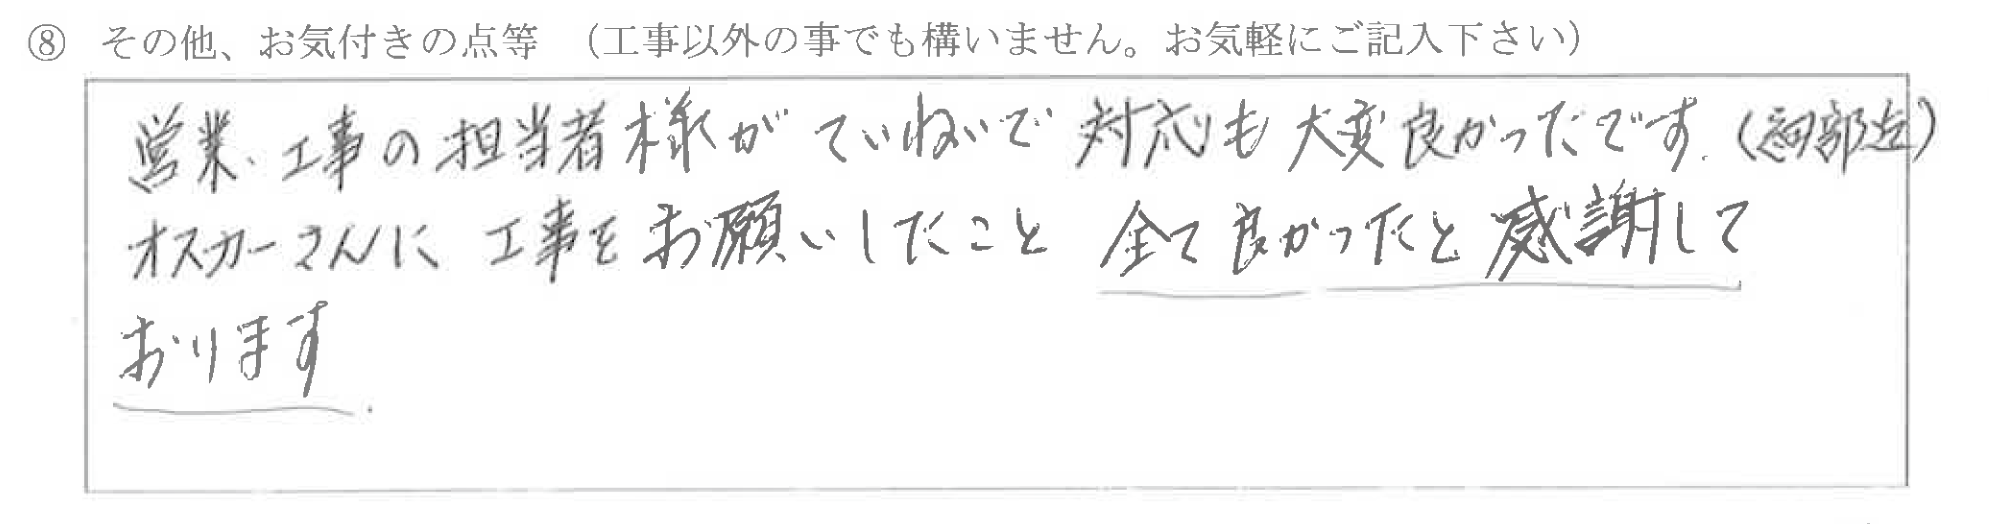 ⑧ その他、お気付きの点等 （工事以外の事でも構いません。お気軽にご記入下さい）
営業、工事の担当者様がていねいで 対応も大変良かったです.
オスカーさんに 工事をお願いしたこと 全て良かったと感謝して
おります.